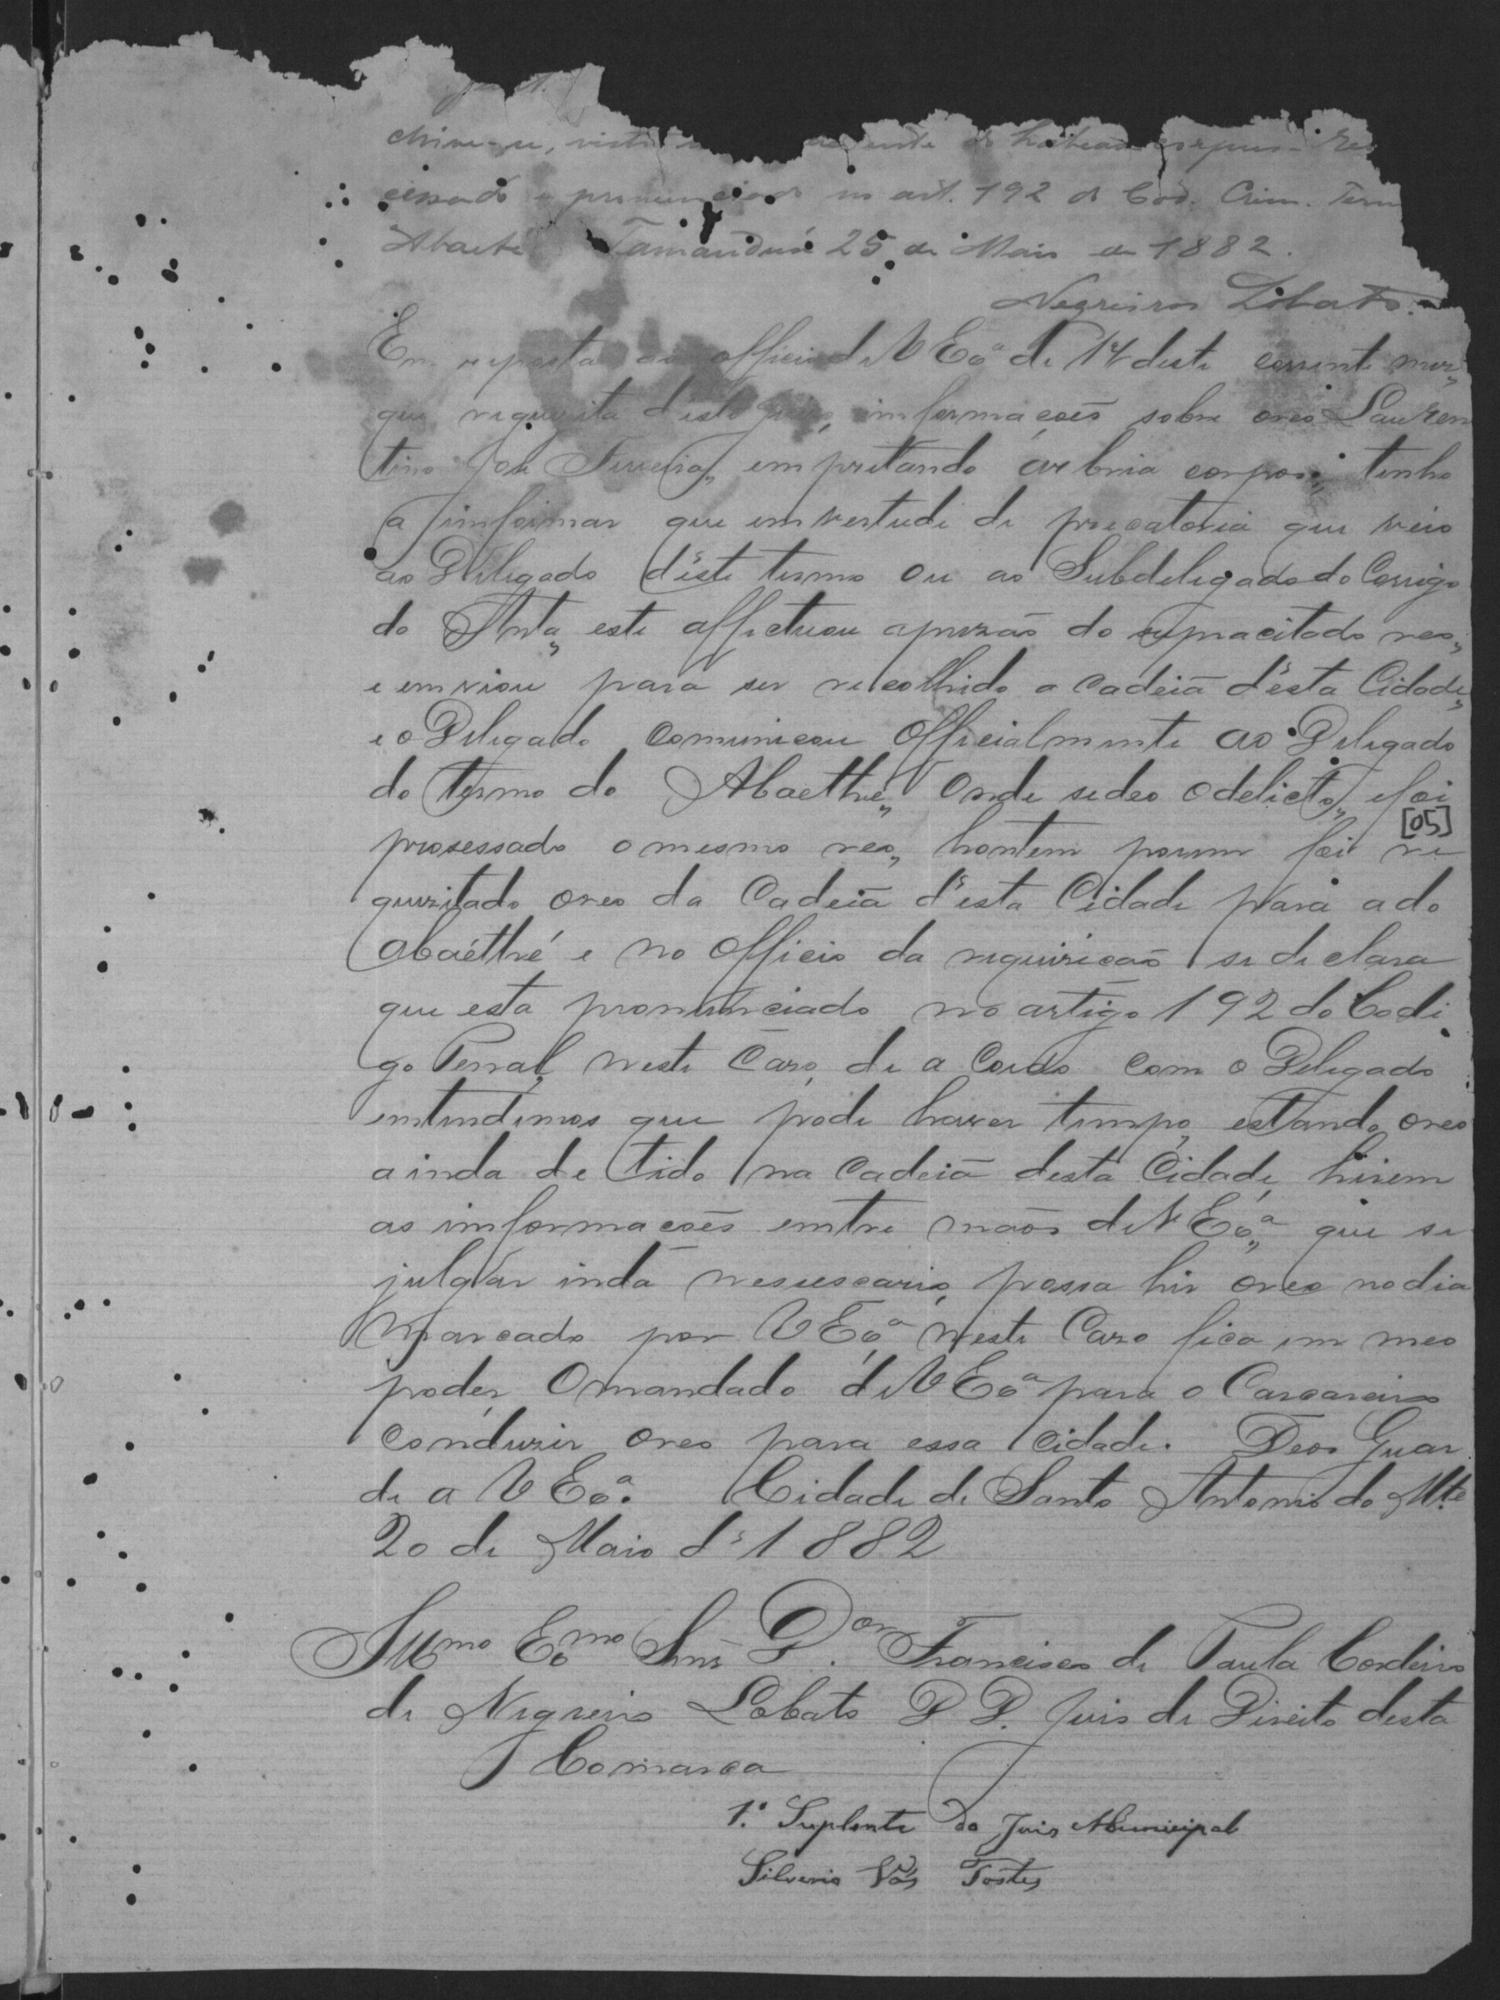 chive-se, visto de habeas corpus
cessado e pronunciado no art. 192 do Cod. Crim. Term
Abaeté Tamanduá 25 de Maio de 1882.
Negreiros Lobato.
Em reposta ao officio de V Exª de 14 deste corrente mez„
que requizita deste juizo, informaçoẽs sobre oreo Lauren
tino José Ferreira„ empretando avbria corpos„ tenho
a imformar que em vertude de precatoria que veio
ao Delegado d'este termo ou ao Subdelegado do Corrigo
do Anta„ este affectuou aprizaõ do supracitado reo„
e emviou para ser recolhido a cadeiã d'esta Cidade„
e o Delegado comunicou officialmente ao Delegado
do termo do Abaethé„ onde sedeo odelicto„ e foi
[05]
prosessado omesmo reo„ hontem porem foi re
quizitado oreo da Cadeiã d'esta Cidade para a do
Abaéthé e no officio da requiziçaõ se declara
que esta pronunciado no artigo 192 do Codi
go Penal, neste Cazo, de a Cordo com o Delegado
emtendemos que pode haver tempo, estando oreo
ainda de tido na Cadeiã desta Cidade, hirem
as imformaçoẽs emtre maõs de V Exª„ que se
julgar inda nesescario, possa hir oreo no dia
Marcado por V Exª, neste Cazo fica em meo
poder, Omandado de V Exª para o Carcareiro
conduzir oreo para essa cidade. Deos Guar
de a V Exª. Cidade de Santo Antonio do Mte
20 de Maio d' 1882
Illmo Exmo Snr Dor Francisco de Paula Cordeiro
de Negreiro Lobato D D. Juis de Direito desta
Comarca
1.º Suplente do Juis Municipal
Silverio Vás Tostes